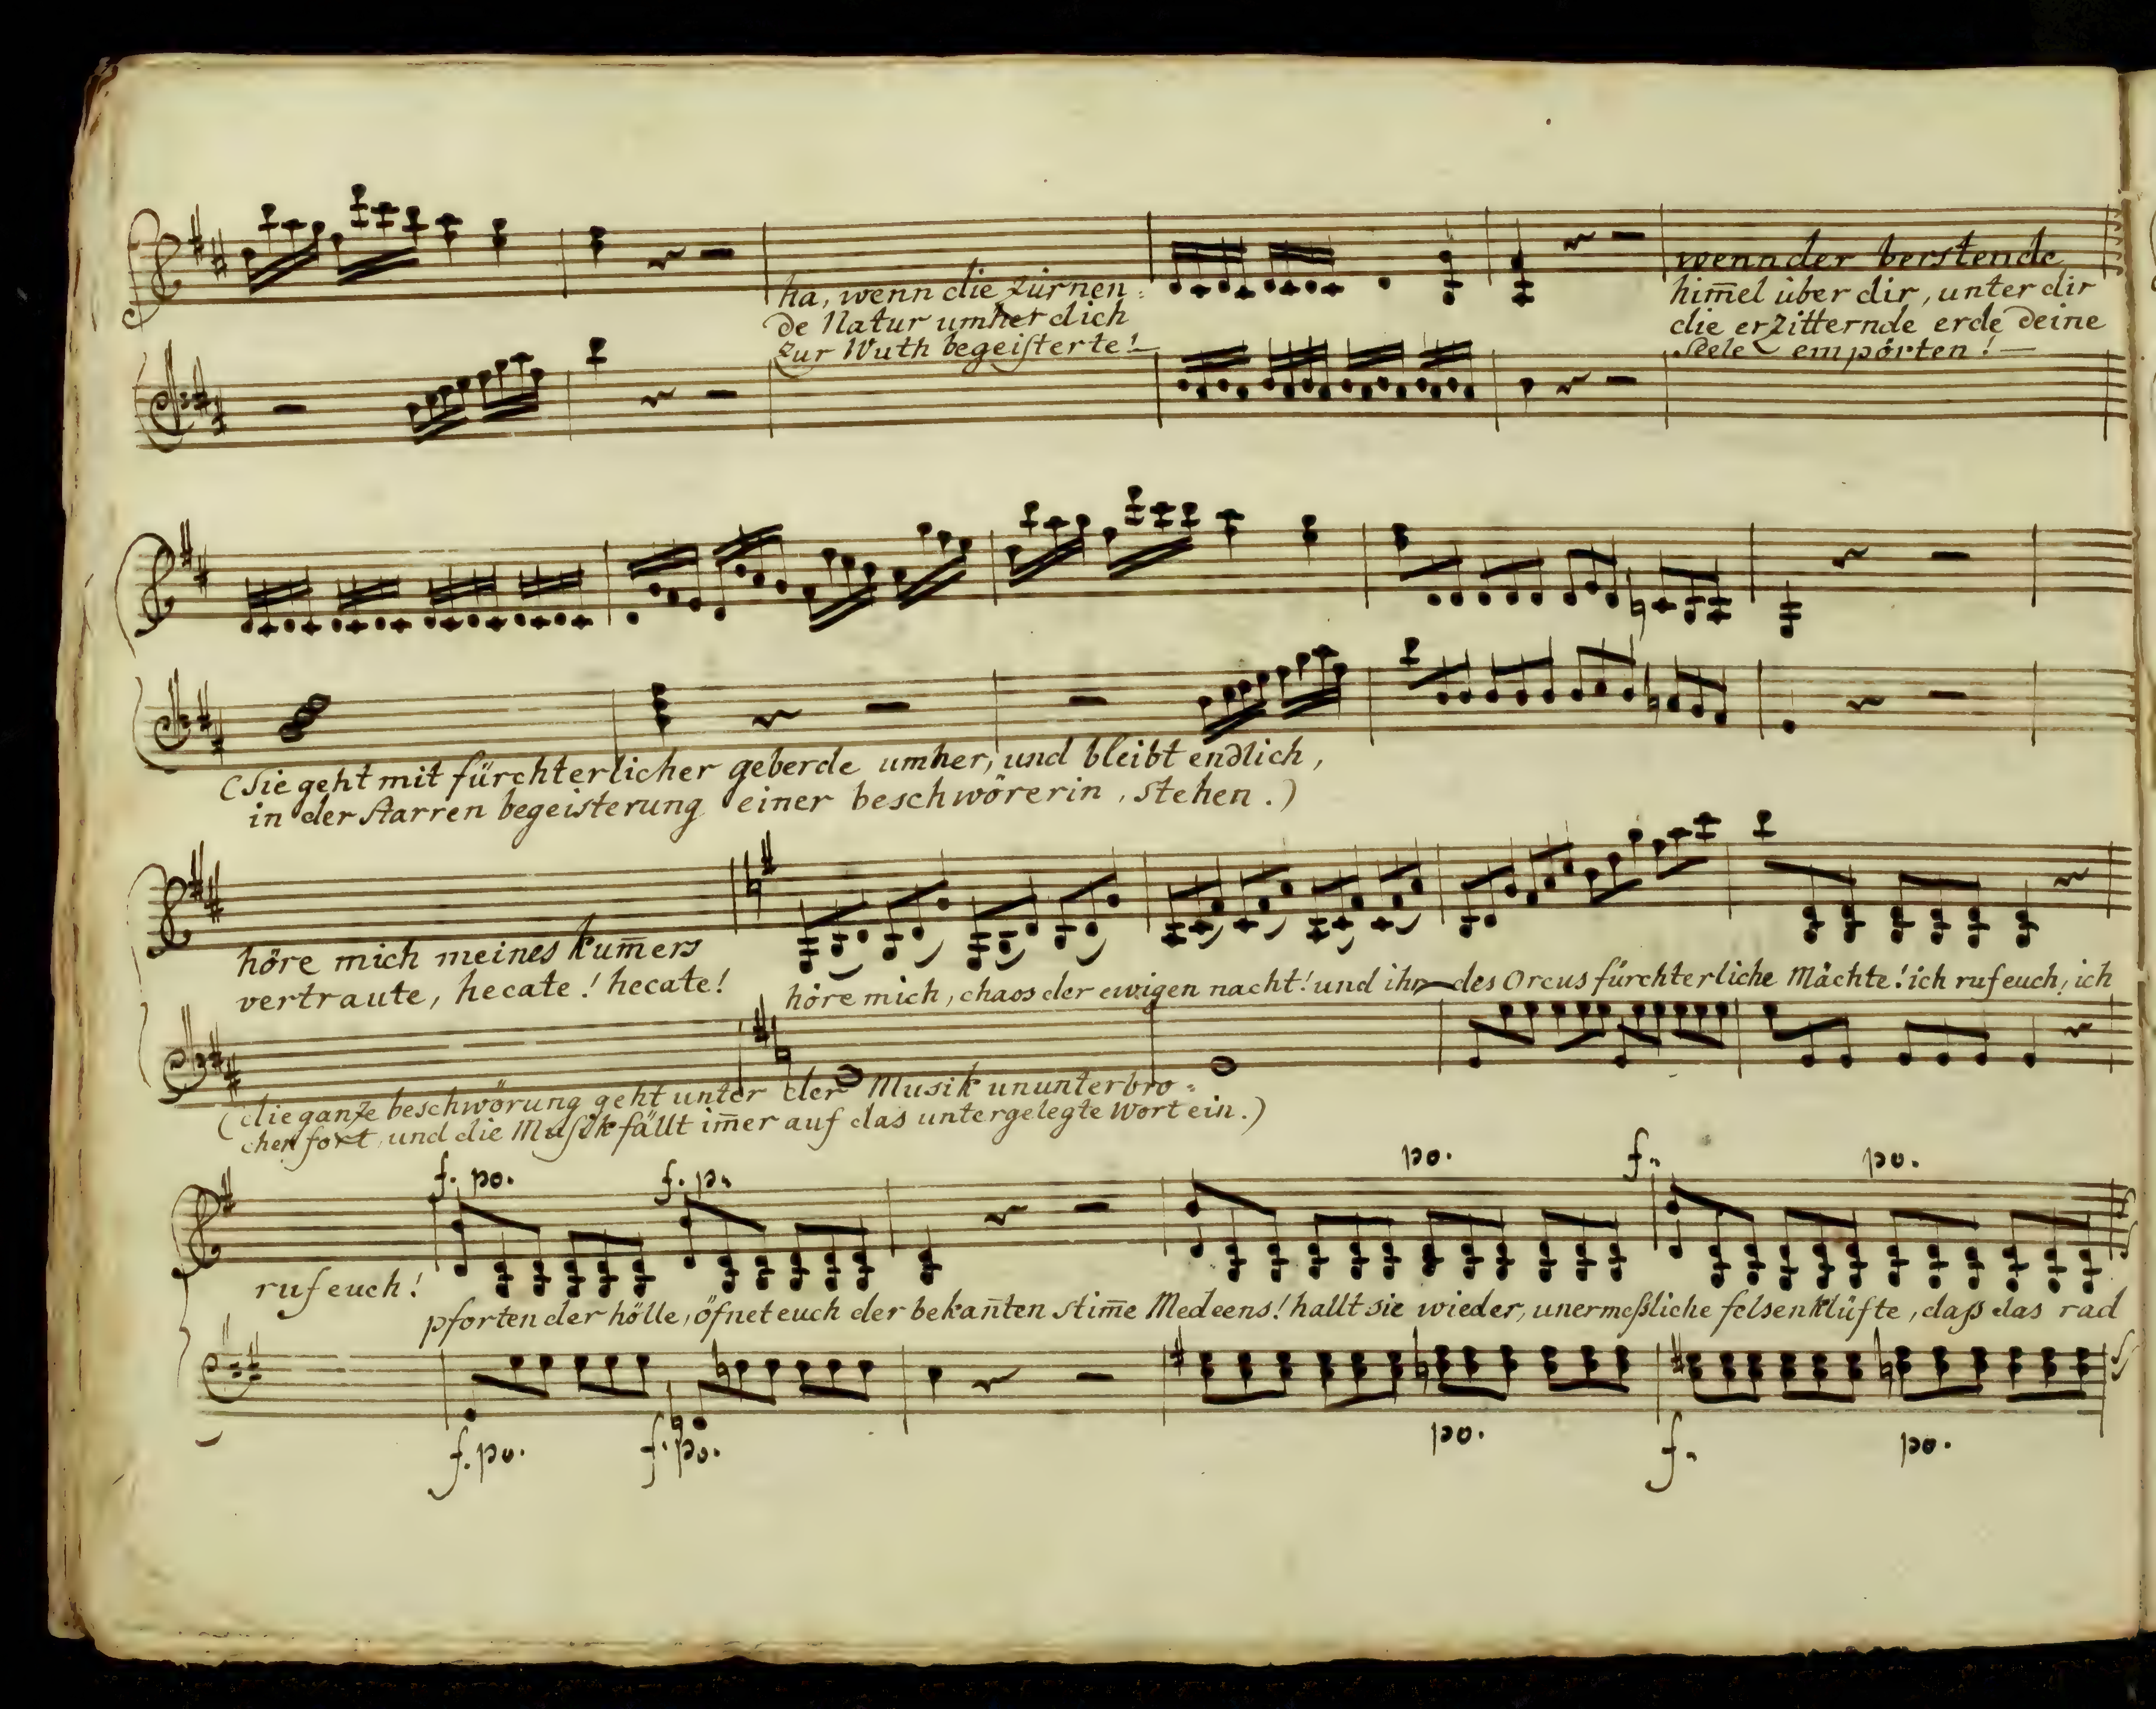 ha, wenn die zürnen=
de Natur umher dich
zur Wuth begeisterte!—
wenn der berstende
him̄el über dir, unter dir
die erzitternde erde deine
Seele empörten!—
(Sie geht mit fürchterlicher geberde umher, und bleibt endlich,
in der starren begeisterung einer beschwörerin, stehen.)
höre mich meines kum̄ers
vertraute, hecate! hecate!
höre mich, chaos der ewigen nacht! und ihr des Orcus fürchterliche Mächte! ich ruf euch, ich
(die ganze beschwörung geht unter der Musik ununterbro=
chen fort, und die Musik fällt im̄er auf das untergelegte Wort ein.)
f. po. f. po. po. f. po.
ruf euch!
pforten der hölle, öfnet euch der bekan̄ten stim̄e Medeens! hallt sie wieder, unermeßliche felsenklüfte, daß das rad
f. po. f. po. po. f. po.